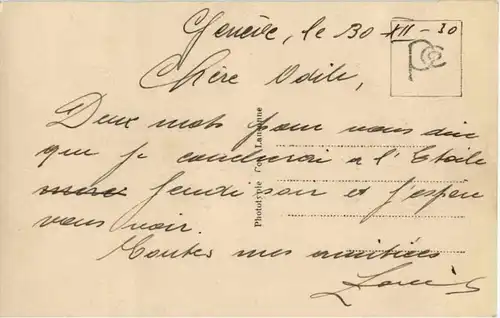 Genève, le 30-XII-30
Chère Odile,
Deux mots pour vous dire
que je conduirai à l'Etoile
jeudi soir et j'espère
vous voir.
Toutes mes amitiées
Louis
Phototypie Co., Lausanne